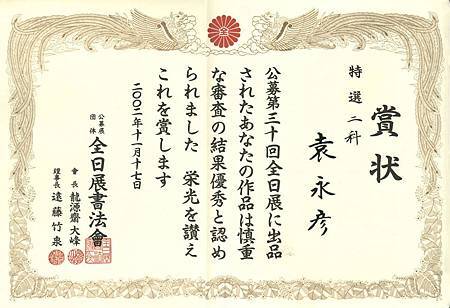 賞状
特選二科
袁永彦
公募第三十回全日展に出品
されたあなたの作品は慎重
な審査の結果優秀と認め
られました 栄光を讃え
これを賞します
二〇〇二年十一月十七日
公募展
団体
全日展書法會
會長 龍源齋大峰
理事長 遠藤竹泉